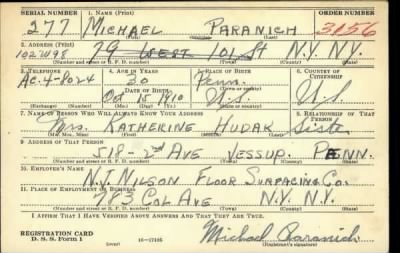 SERIAL NUMBER 1. NAME (Print) ORDER NUMBER
277 MICHAEL PARANICH 3156
2. ADDRESS (Print)
102W98 79 WEST 101 St N.Y. N.Y.
3. TELEPHONE 4. AGE IN YEARS 5. PLACE OF BIRTH 6. COUNTRY OF CITIZENSHIP
AC. 4-8024 30 Penn.
DATE OF BIRTH
Oct 15 1910 U.S. U.S.
(Exchange) (Number) (Mo.) (Day) (Yr.) (State or country)
7. NAME OF PERSON WHO WILL ALWAYS KNOW YOUR ADDRESS 8. RELATIONSHIP OF THAT PERSON
Mrs. KATHERINE HUDAK Sister
(Mr., Mrs., Miss) (First) (Middle) (Last)
9. ADDRESS OF THAT PERSON
518-2nd AVE JESSUP. PENN.
(Number and street or R. F. D. number) (Town) (County) (State)
10. EMPLOYER'S NAME
N.J. NILSON FLOOR SURFACING Co.
11. PLACE OF EMPLOYMENT OR BUSINESS
783 COL AVE N.Y. N.Y.
(Number and street or R. F. D. number) (Town) (County) (State)
I AFFIRM THAT I HAVE VERIFIED ABOVE ANSWERS AND THAT THEY ARE TRUE.
REGISTRATION CARD
D. S. S. Form 1 16-17105 Michael Paranich
(Registrant's signature)